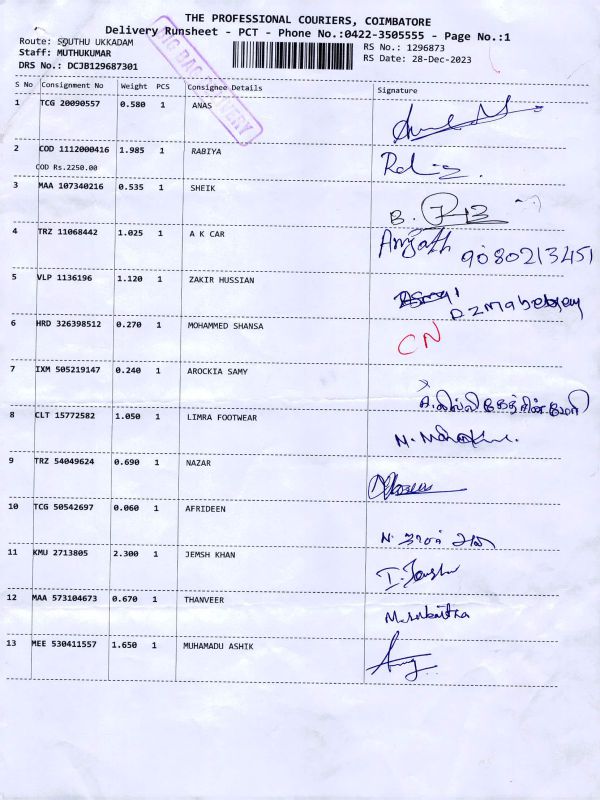 THE PROFESSIONAL COURIERS, COIMBATORE
Delivery Runsheet - PCT - Phone No.:0422-3505555 - Page No.:1
Route: SOUTHU UKKADAM
RS No.: 1296873
Staff: MUTHUKUMAR
RS Date: 28-Dec-2023
DRS No.: DCJB129687301
DELIVERY
S No Consignment No Weight PCS Consignee Details Signature
1 TCG 20090557 0.580 1 ANAS
2 COD 1112000416 1.985 1 RABIYA
COD Rs.2250.00
3 MAA 107340216 0.535 1 SHEIK
B.
4 TRZ 11068442 1.025 1 A K CAR
Amjath 9080213451
5 VLP 1136196 1.120 1 ZAKIR HUSSIAN
6 HRD 326398512 0.270 1 MOHAMMED SHANSA
CN
7 IXM 505219147 0.240 1 AROCKIA SAMY
8 CLT 15772582 1.050 1 LIMRA FOOTWEAR
9 TRZ 54049624 0.690 1 NAZAR
10 TCG 50542697 0.060 1 AFRIDEEN
11 KMU 2713805 2.300 1 JEMSH KHAN
12 MAA 573104673 0.670 1 THANVEER
13 MEE 530411557 1.650 1 MUHAMADU ASHIK